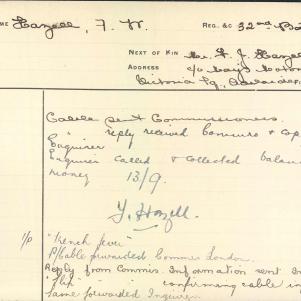 ME Hazell, F. W. REG. &C 32nd Ba
NEXT OF KIN Mr. F. J. Hazell
ADDRESS c/o Mays Motor
Victoria Sq., Adelaide
Cable sent Commissioners.
" reply received Commrs & cop
Enquirer
Enquirer called & collected balan
money 13/9.
F. Hazell.
"Trench fever"
P/Cable forwarded Commrs London.
Reply from Commrs. Information sent In
confirming cable
same forwarded Inquirer